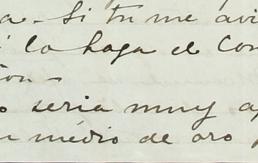 a. Si tu me avi
la haga el Con
on -
o seria muy a
n médio de oro